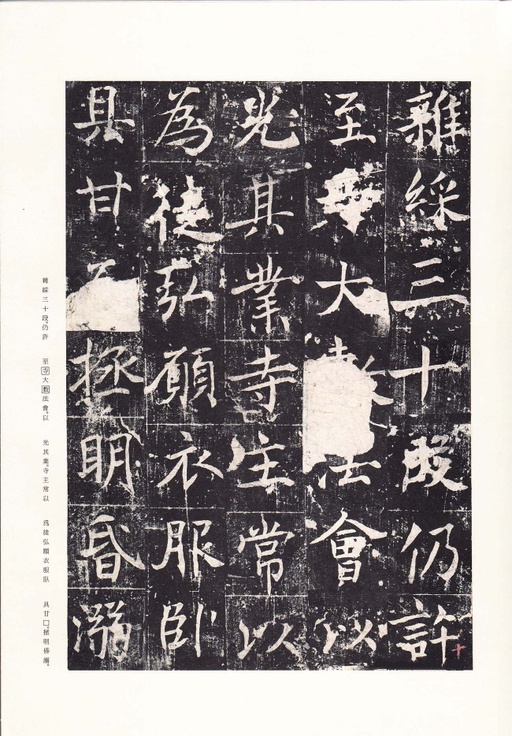 雜綵三十段仍許
至大法會以
光其業寺主常以
為徒弘願衣服卧
具甘拯明昏溺
十
雜綵三十段，仍許　至大法會，以　光其業。寺主常以　爲徒弘願衣服臥　具甘□，拯明溺。